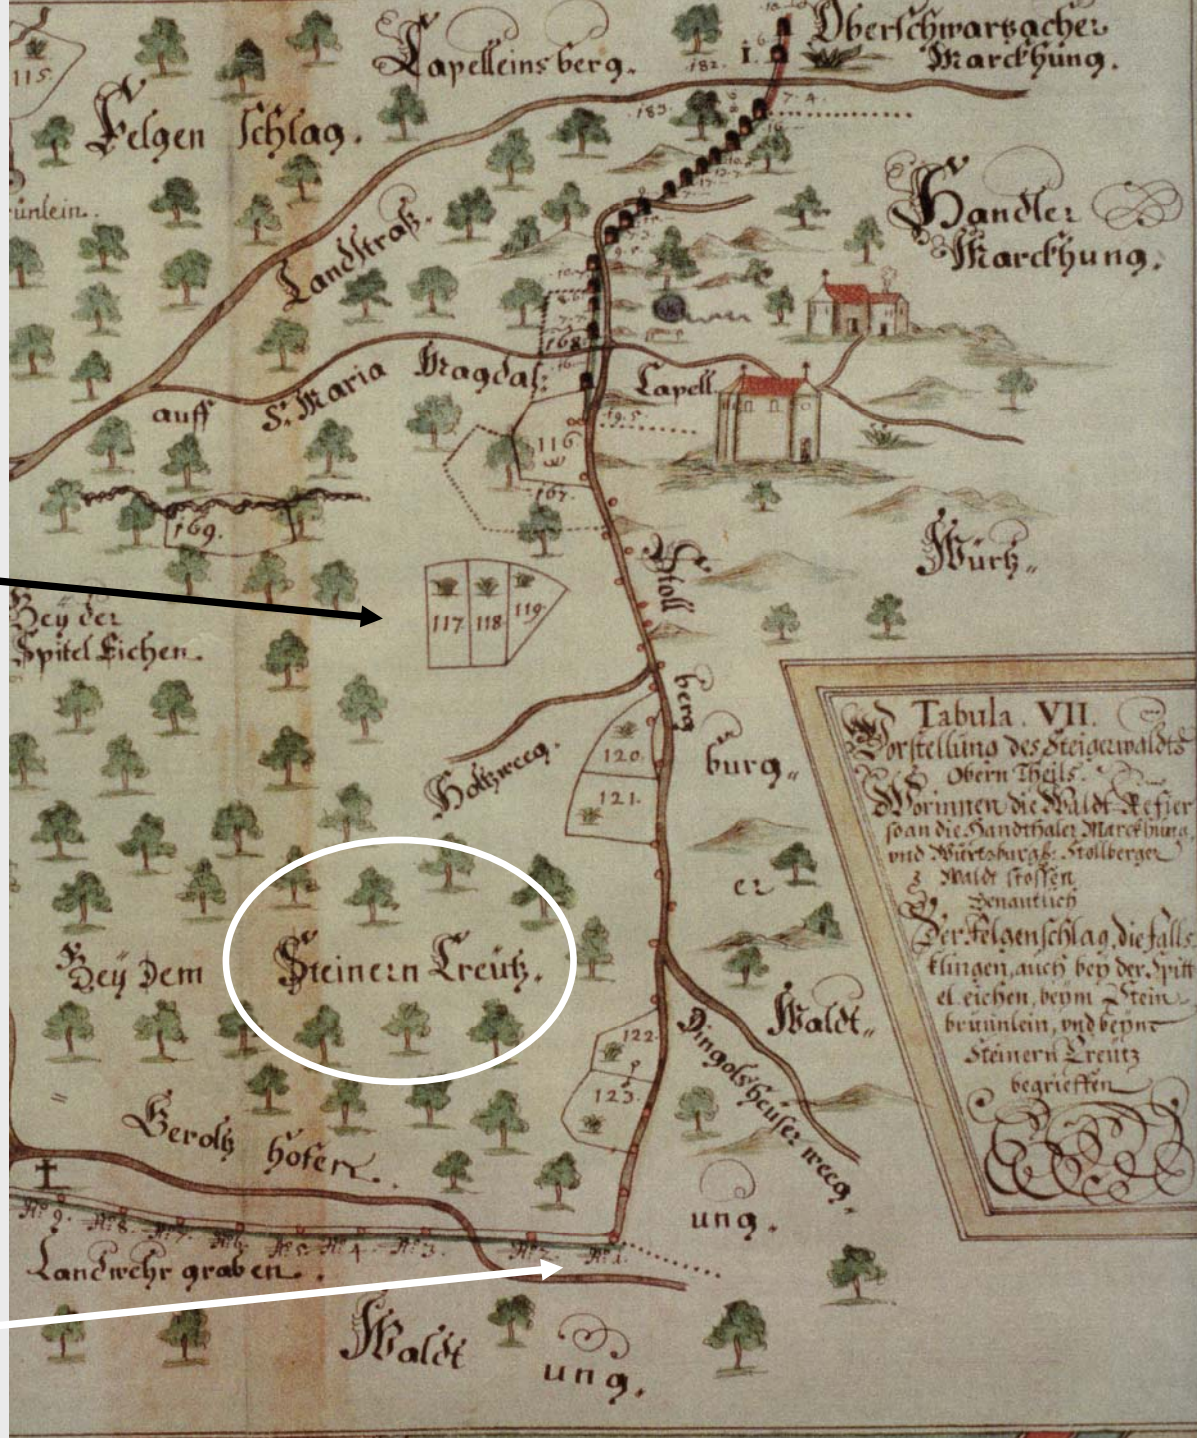 115.
Capelleinsberg.
182.
I.
Oberschwartzacher
Marckhung.
Felgen Schlag.
183.
7. 4.
ünlein.
Landstraß.
Handler
Marckhung.
168.
auff S. Maria Magdal: Capell.
19. 5.
116
167.
169.
Würtz„
Stoll
berg
Bey der
Spitel Eichen.
117 118. 119.
Holtzweeg.
120.
121.
burg„
er
Waldt„
ung.
Bey Dem Steinern Creütz.
122.
123.
Dingolsheuser weeg.
Geroltz hofer
No 9. No 8. No 7. No 6. No 5. No 4. No 3. No 2. No 1.
Landwehr graben.
Waldt ung.
Tabula. VII.
Vorstellung des Steigerwaldts
Obern Theils.
Worinnen die Waldt Refier
so an die Handthaler Marckhung,
vnd Würtzburg: Stollberger
Waldt stossen
Benantlich
Der Felgenschlag, die Fall
klingen, auch bey der Spitt
el eichen, beym Stein
brünnlein, vnd beym
Steinern Creütz
begrieffen